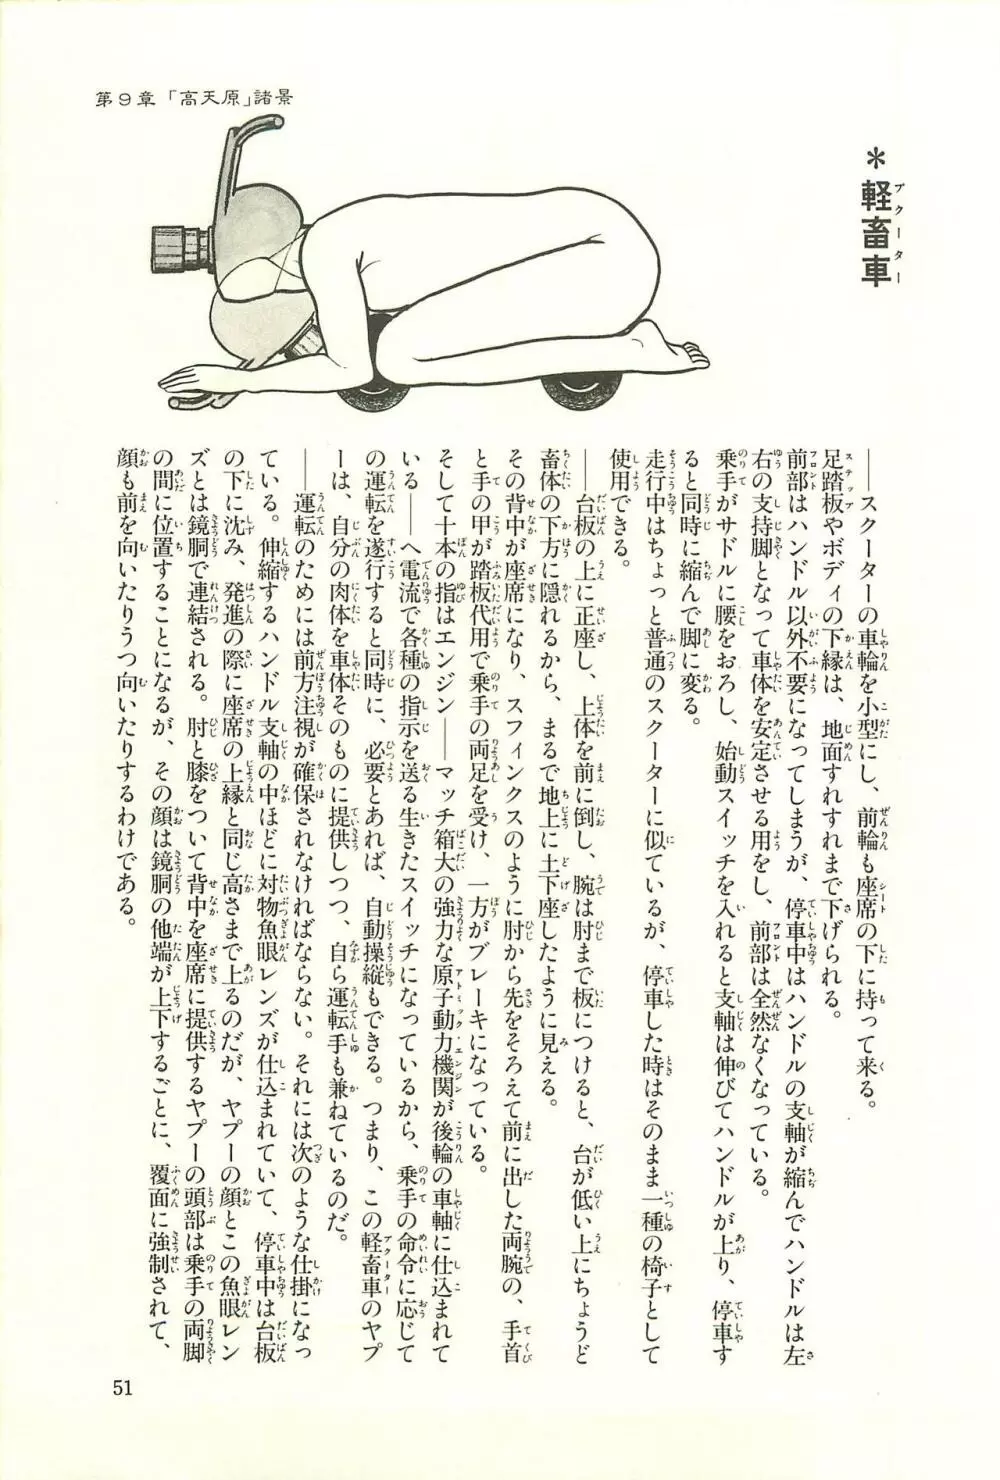 第9章「高天原」諸景
＊軽畜車
プクーター
――スクーターの車輪を小型にし、前輪も座席の下に持って来る。
足踏板やボディの下縁は、地面すれすれまで下げられる。
前部はハンドル以外不要になってしまうが、停車中はハンドルの支軸が縮んでハンドルは左
右の支持脚となって車体を安定させる用をし、前部は全然なくなっている。
乗手がサドルに腰をおろし、始動スイッチを入れると支軸は伸びてハンドルが上り、停車す
ると同時に縮んで脚に変る。
走行中はちょっと普通のスクーターに似ているが、停車した時はそのまま一種の椅子として
使用できる。
――台板の上に正座し、上体を前に倒し、腕は肘まで板につけると、台が低い上にちょうど
畜体の下方に隠れるから、まるで地上に土下座したように見える。
その背中が座席になり、スフィンクスのように肘から先をそろえて前に出した両腕の、手首
と手の甲が踏板代用で乗手の両足を受け、一方がブレーキになっている。
そして十本の指はエンジン――マッチ箱大の強力な原子動力機関が後輪の車軸に仕込まれて
いる――へ電流で各種の指示を送る生きたスイッチになっているから、乗手の命令に応じて
の運転を遂行すると同時に、必要とあれば、自動操縦もできる。つまり、この軽畜車のヤプ
ーは、自分の肉体を車体そのものに提供しつつ、自ら運転手も兼ねているのだ。
――運転のためには前方注視が確保されなければならない。それには次のような仕掛になっ
ている。伸縮するハンドル支軸の中ほどに対物魚眼レンズが仕込まれていて、停車中は台板
の下に沈み、発進の際に座席の上縁と同じ高さまで上るのだが、ヤプーの顔とこの魚眼レン
ズとは鏡胴で連結される。肘と膝をついて背中を座席に提供するヤプーの頭部は乗手の両脚
の間に位置することになるが、その顔は鏡胴の他端が上下するごとに、覆面に強制されて、
顔も前を向いたりうつ向いたりするわけである。
51